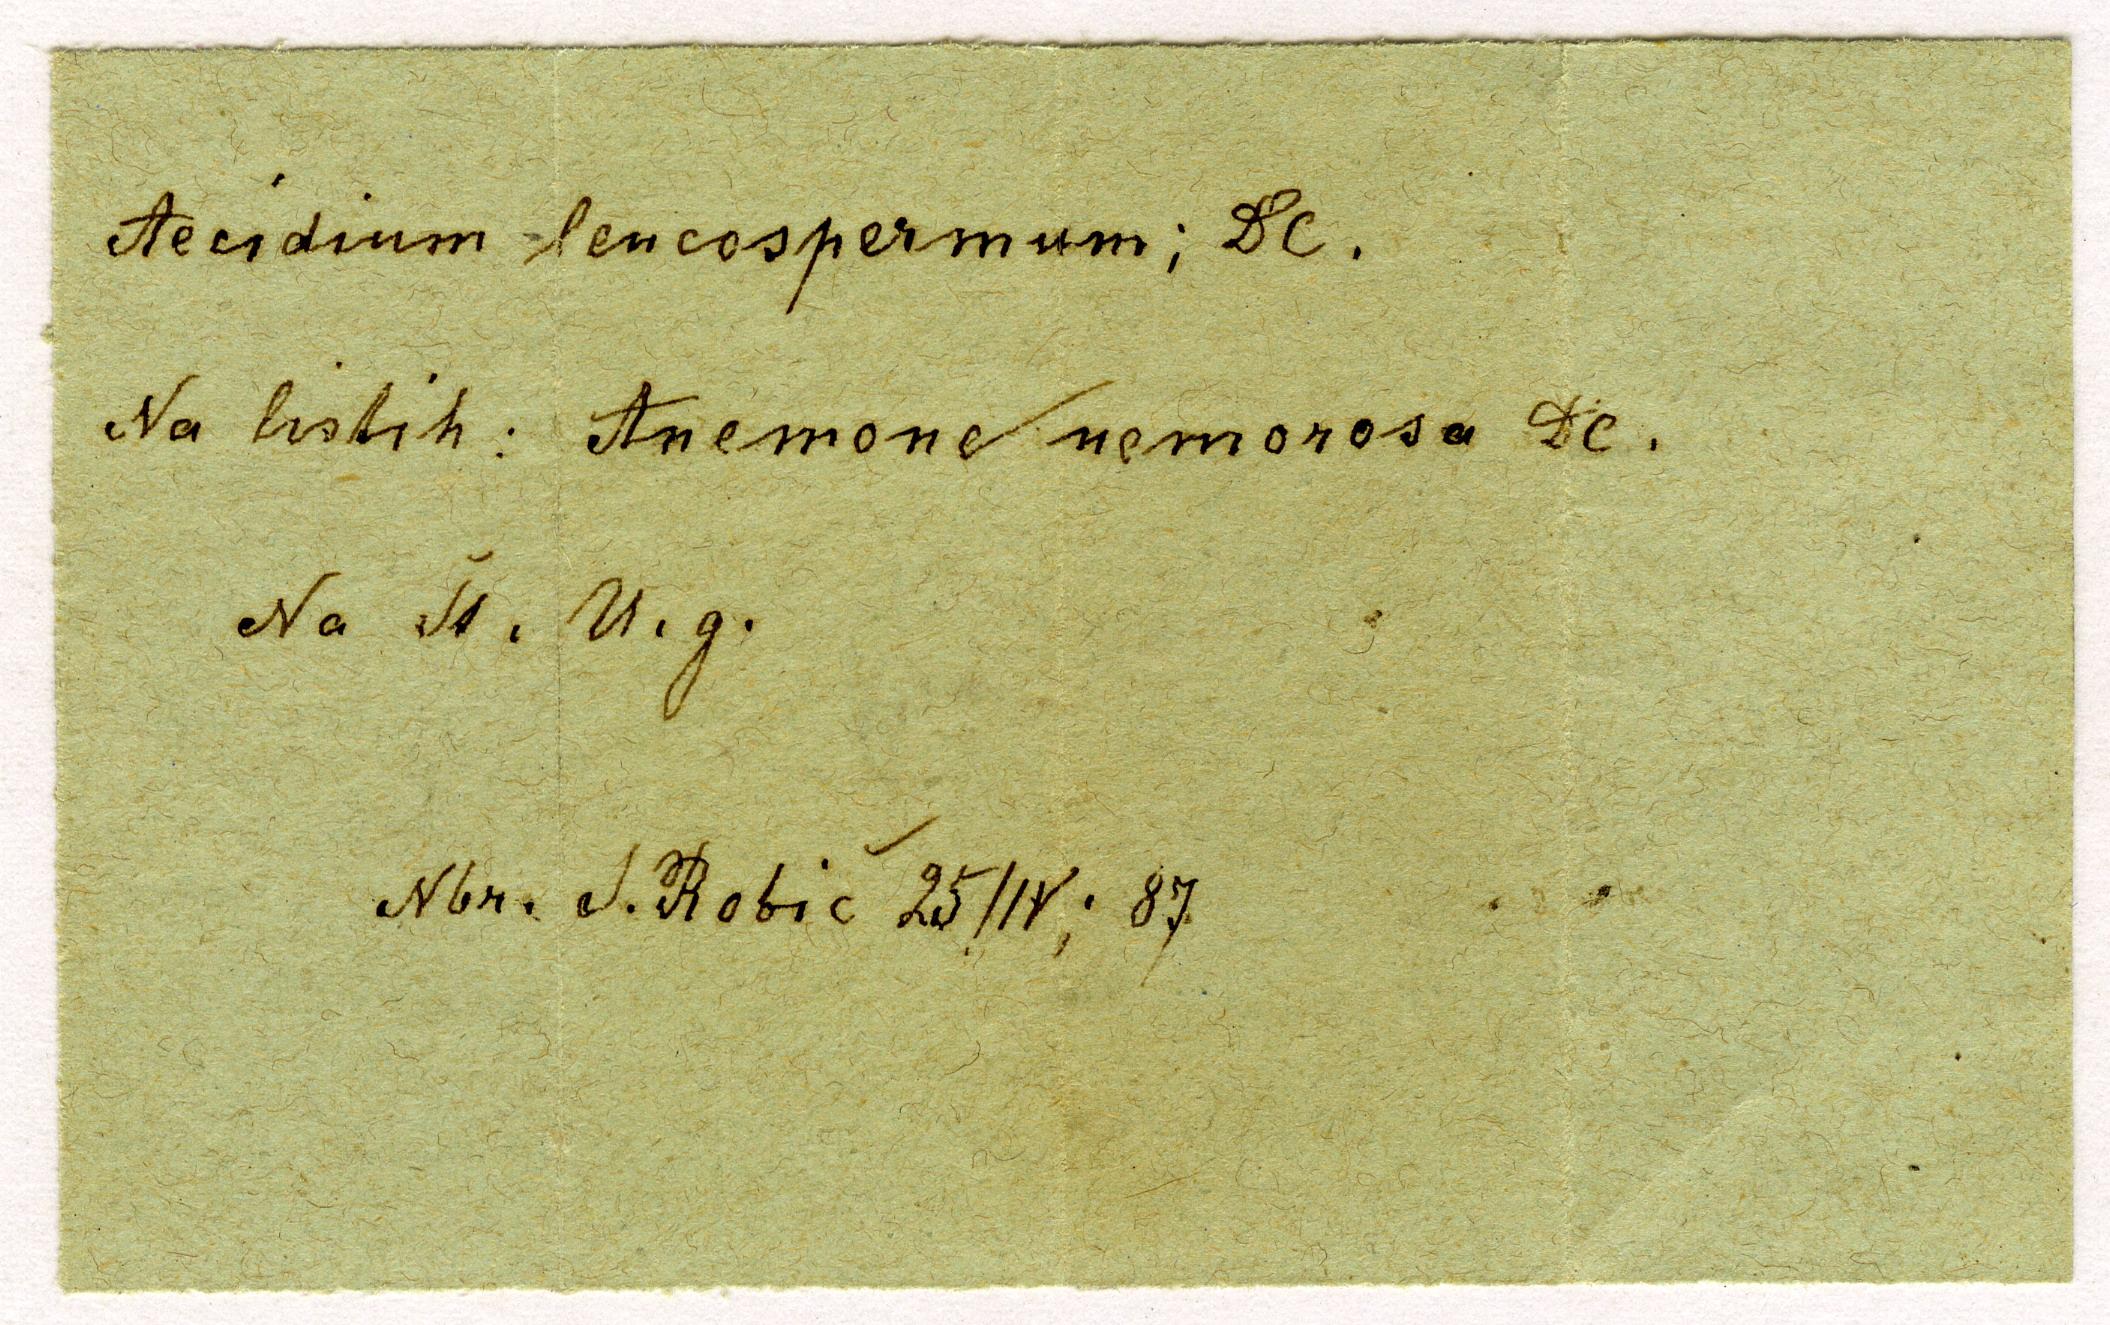 Aecidium leucospermum; DC.
Na listih: Anemone nemorosa DC.
Na Št. U. g.
Nbr. S. Robič 25/IV; 87